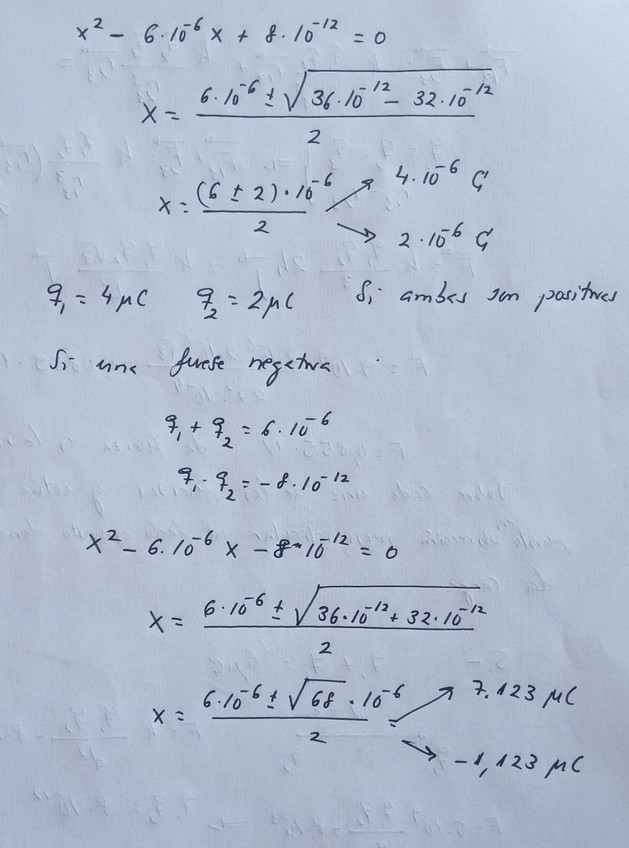 x² - 6·10⁻⁶ x + 8·10⁻¹² = 0
x = (6·10⁻⁶ ± √(36·10⁻¹² - 32·10⁻¹²)) / 2
x = ((6 ± 2)·10⁻⁶) / 2 → 4·10⁻⁶ C
→ 2·10⁻⁶ C
q₁ = 4 μC q₂ = 2 μC Si ambas son positivas
Si una fuese negativa
q₁ + q₂ = 6·10⁻⁶
q₁ · q₂ = -8·10⁻¹²
x² - 6·10⁻⁶ x - 8·10⁻¹² = 0
x = (6·10⁻⁶ ± √(36·10⁻¹² + 32·10⁻¹²)) / 2
x = (6·10⁻⁶ ± √68 · 10⁻⁶) / 2 = → 7.123 μC
→ -1,123 μC